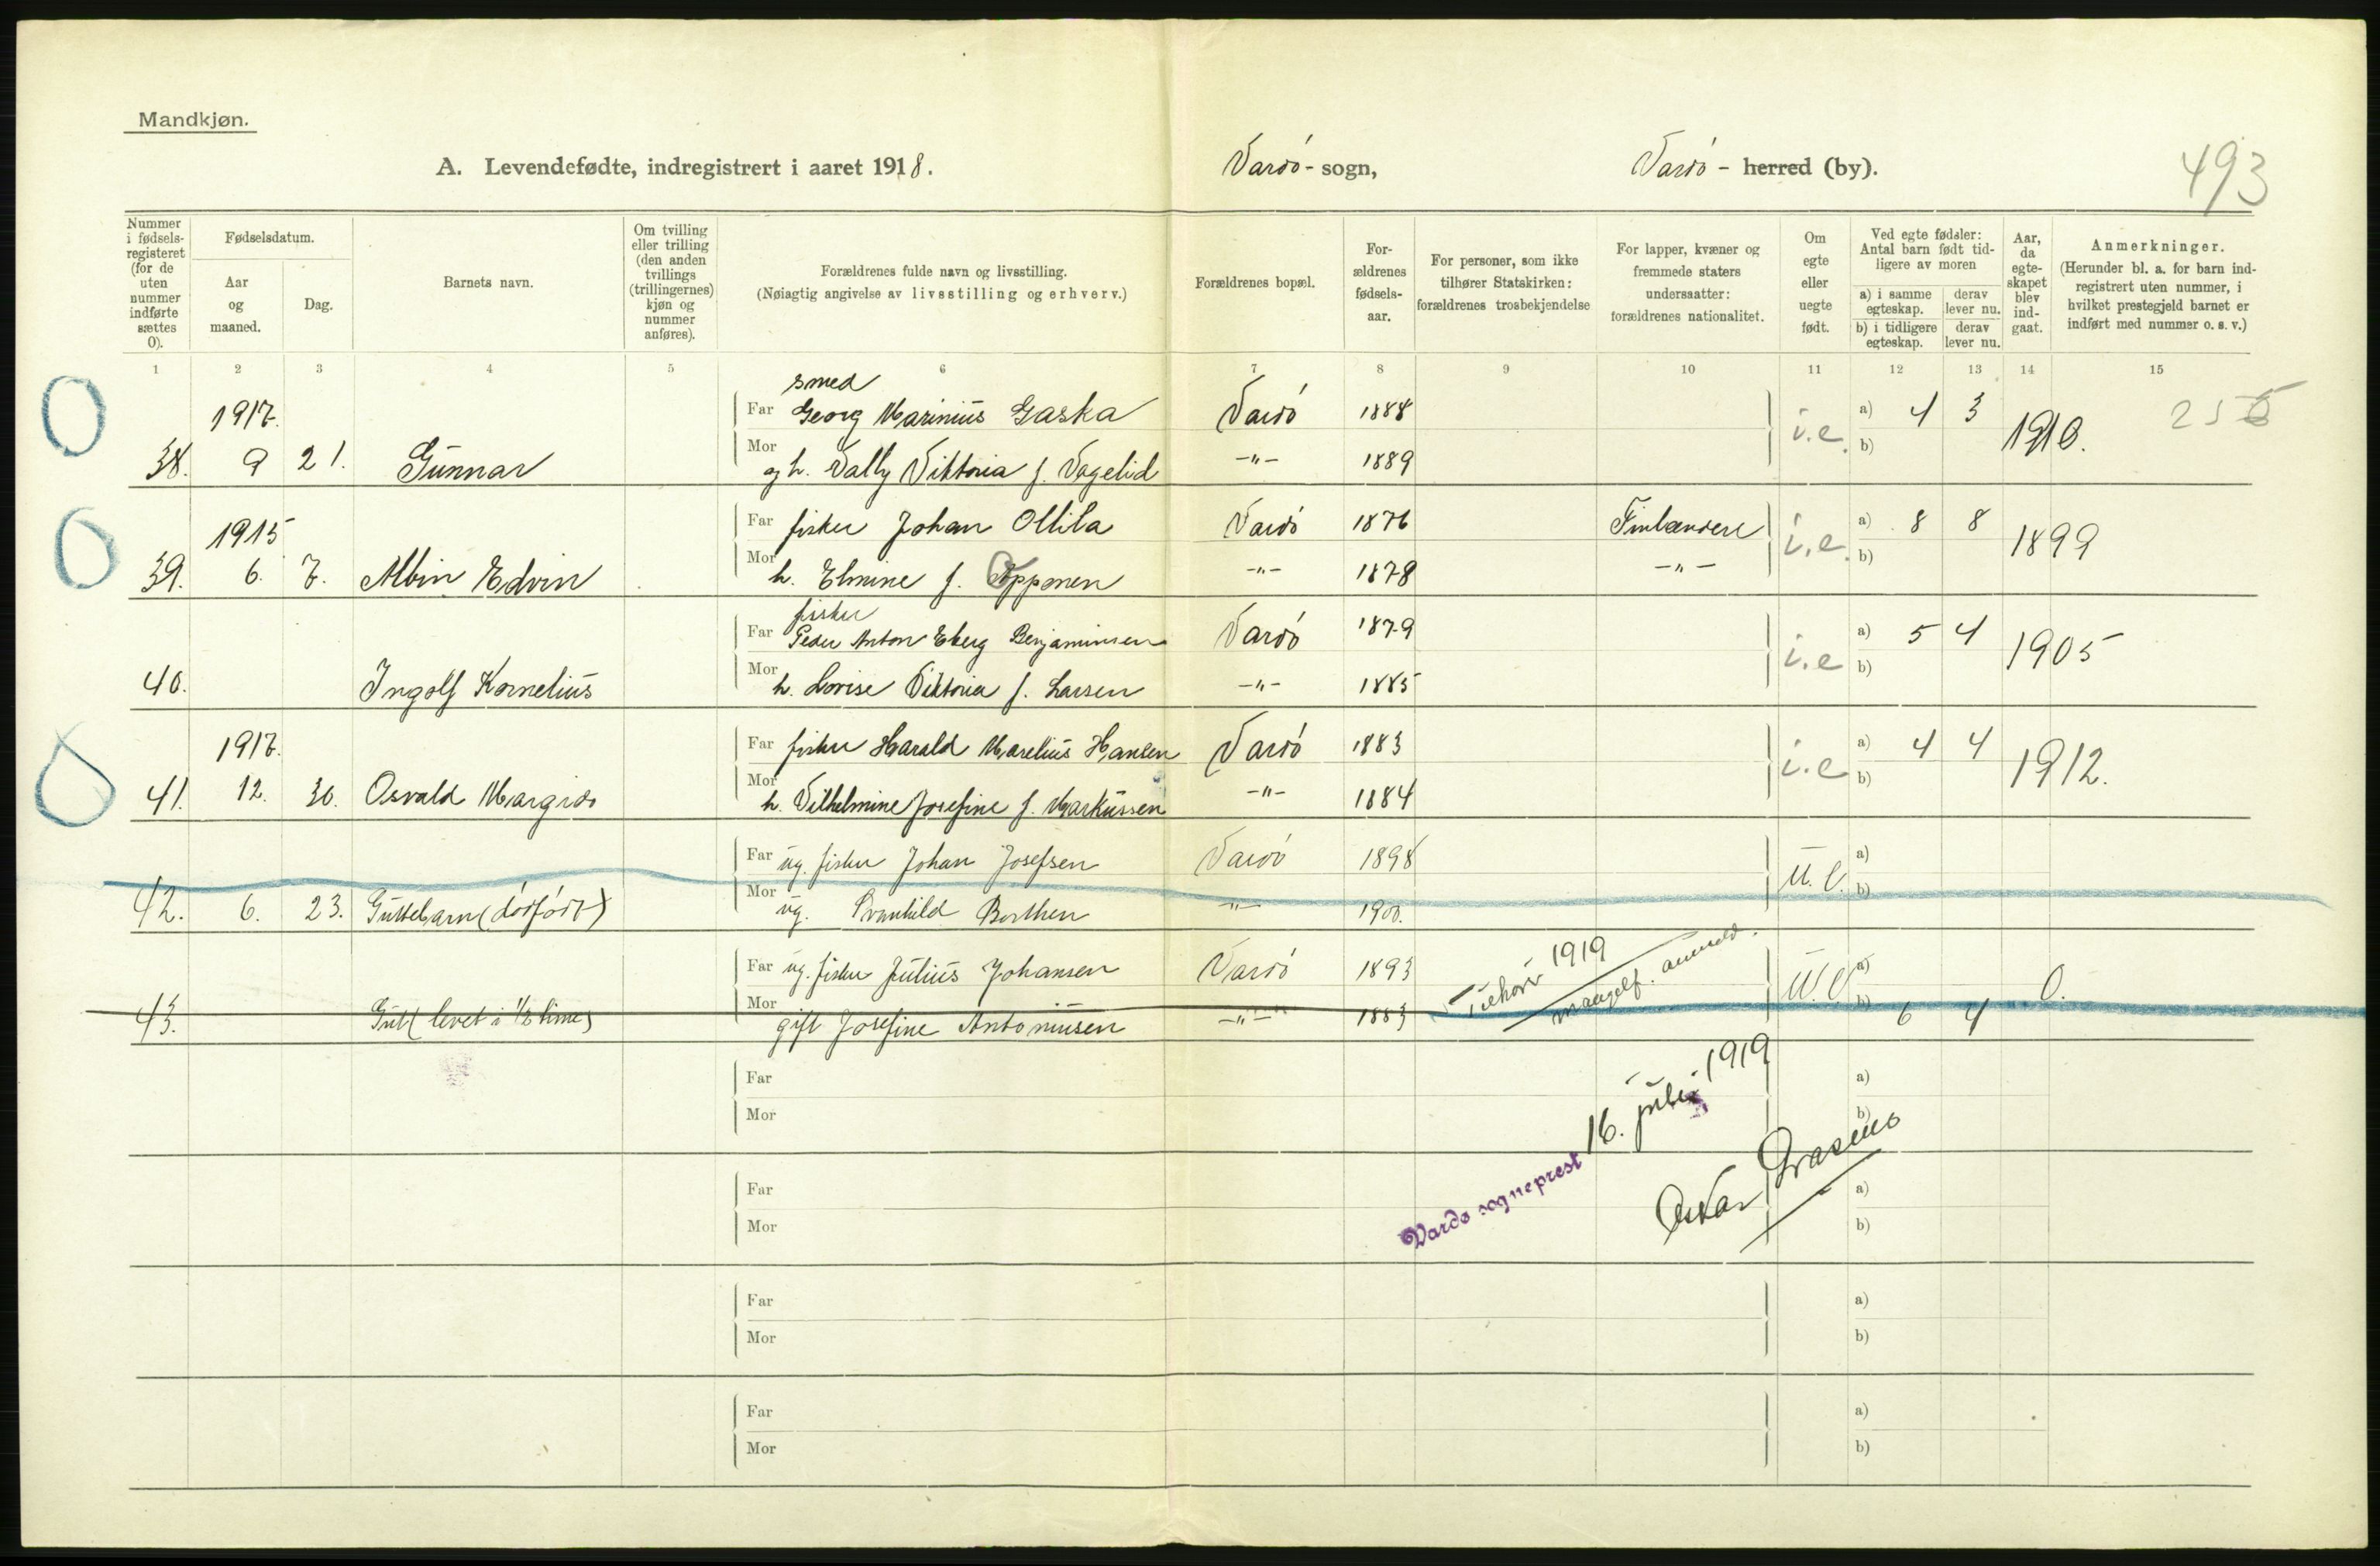 Mandkjøn.
A. Levendefødte, indregistrert i aaret 1918.
Vardö - sogn,
Vardö - herred (by).
493
Nummer i fødselsregisteret (for de uten nummer indførte sættes 0).
Fødselsdatum.
Aar og maaned.
Dag.
Barnets navn.
Om tvilling eller trilling (den anden tvillings (trillingernes) kjøn og nummer anføres).
Forældrenes fulde navn og livsstilling.
(Nøiagtig angivelse av livsstilling og erhverv.)
Forældrenes bopæl.
Forældrenes fødselsaar.
For personer, som ikke tilhører Statskirken: forældrenes trosbekjendelse
For lapper, kvæner og fremmede staters undersaatter: forældrenes nationalitet.
Om egte eller uegte født.
Ved egte fødsler: Antal barn født tidligere av moren
a) i samme egteskap.
derav lever nu.
b) i tidligere egteskap.
derav lever nu.
Aar, da egteskapet blev indgaat.
Anmerkninger.
(Herunder bl. a. for barn indregistrert uten nummer, i hvilket prestegjeld barnet er indført med nummer o. s. v.)
1 2 3 4 5 6 7 8 9 10 11 12 13 14 15
smed
1917. Far Georg Marinius Gaska Vardö 1888 a) 4 3
38. 9 21. Gunnar Mor og h. Vally Viktoria f. Vagelid -"- 1889 i.e. b) 1910.
1915 Far fisker Johan Ollila Vardö 1876 Finlændere a) 8 8
39. 6. 7. Albin Edvin Mor h. Elmine f. Opponen -"- 1878 -"- i.e. b) 1899
fisker
Far Peder Anton Eberg Benjaminsen Vardö 1879 a) 5 4
40. Ingolf Kornelius Mor h. Lovise Viktoria f. Larsen -"- 1885 i.e b) 1905
1917. Far fisker Harald Marelius Hansen Vardö 1883 a) 4 4
41. 12. 30. Osvald Margido Mor h. Vilhelmine Josefine f. Markussen -"- 1884 i.e b) 1912.
Far ug. fisker Johan Josefsen Vardö 1898 a)
42. 6. 23. Guttebarn (dödfödt) Mor ug. Svanhild Berthen -"- 1900. U.e. b)
Far ug. fisker Julius Johansen Vardö 1893 Tilhörer 1919 a)
43. Gut (levet i 1/2 time) Mor gift Josefine Antoniusen -"- 1883 U.e. b) 6 4 0.
Far a)
Mor b)
Vardø sogneprest 16. juli 1919
Far a)
Mor b)
Far a)
Mor b)
Far a)
Mor b)